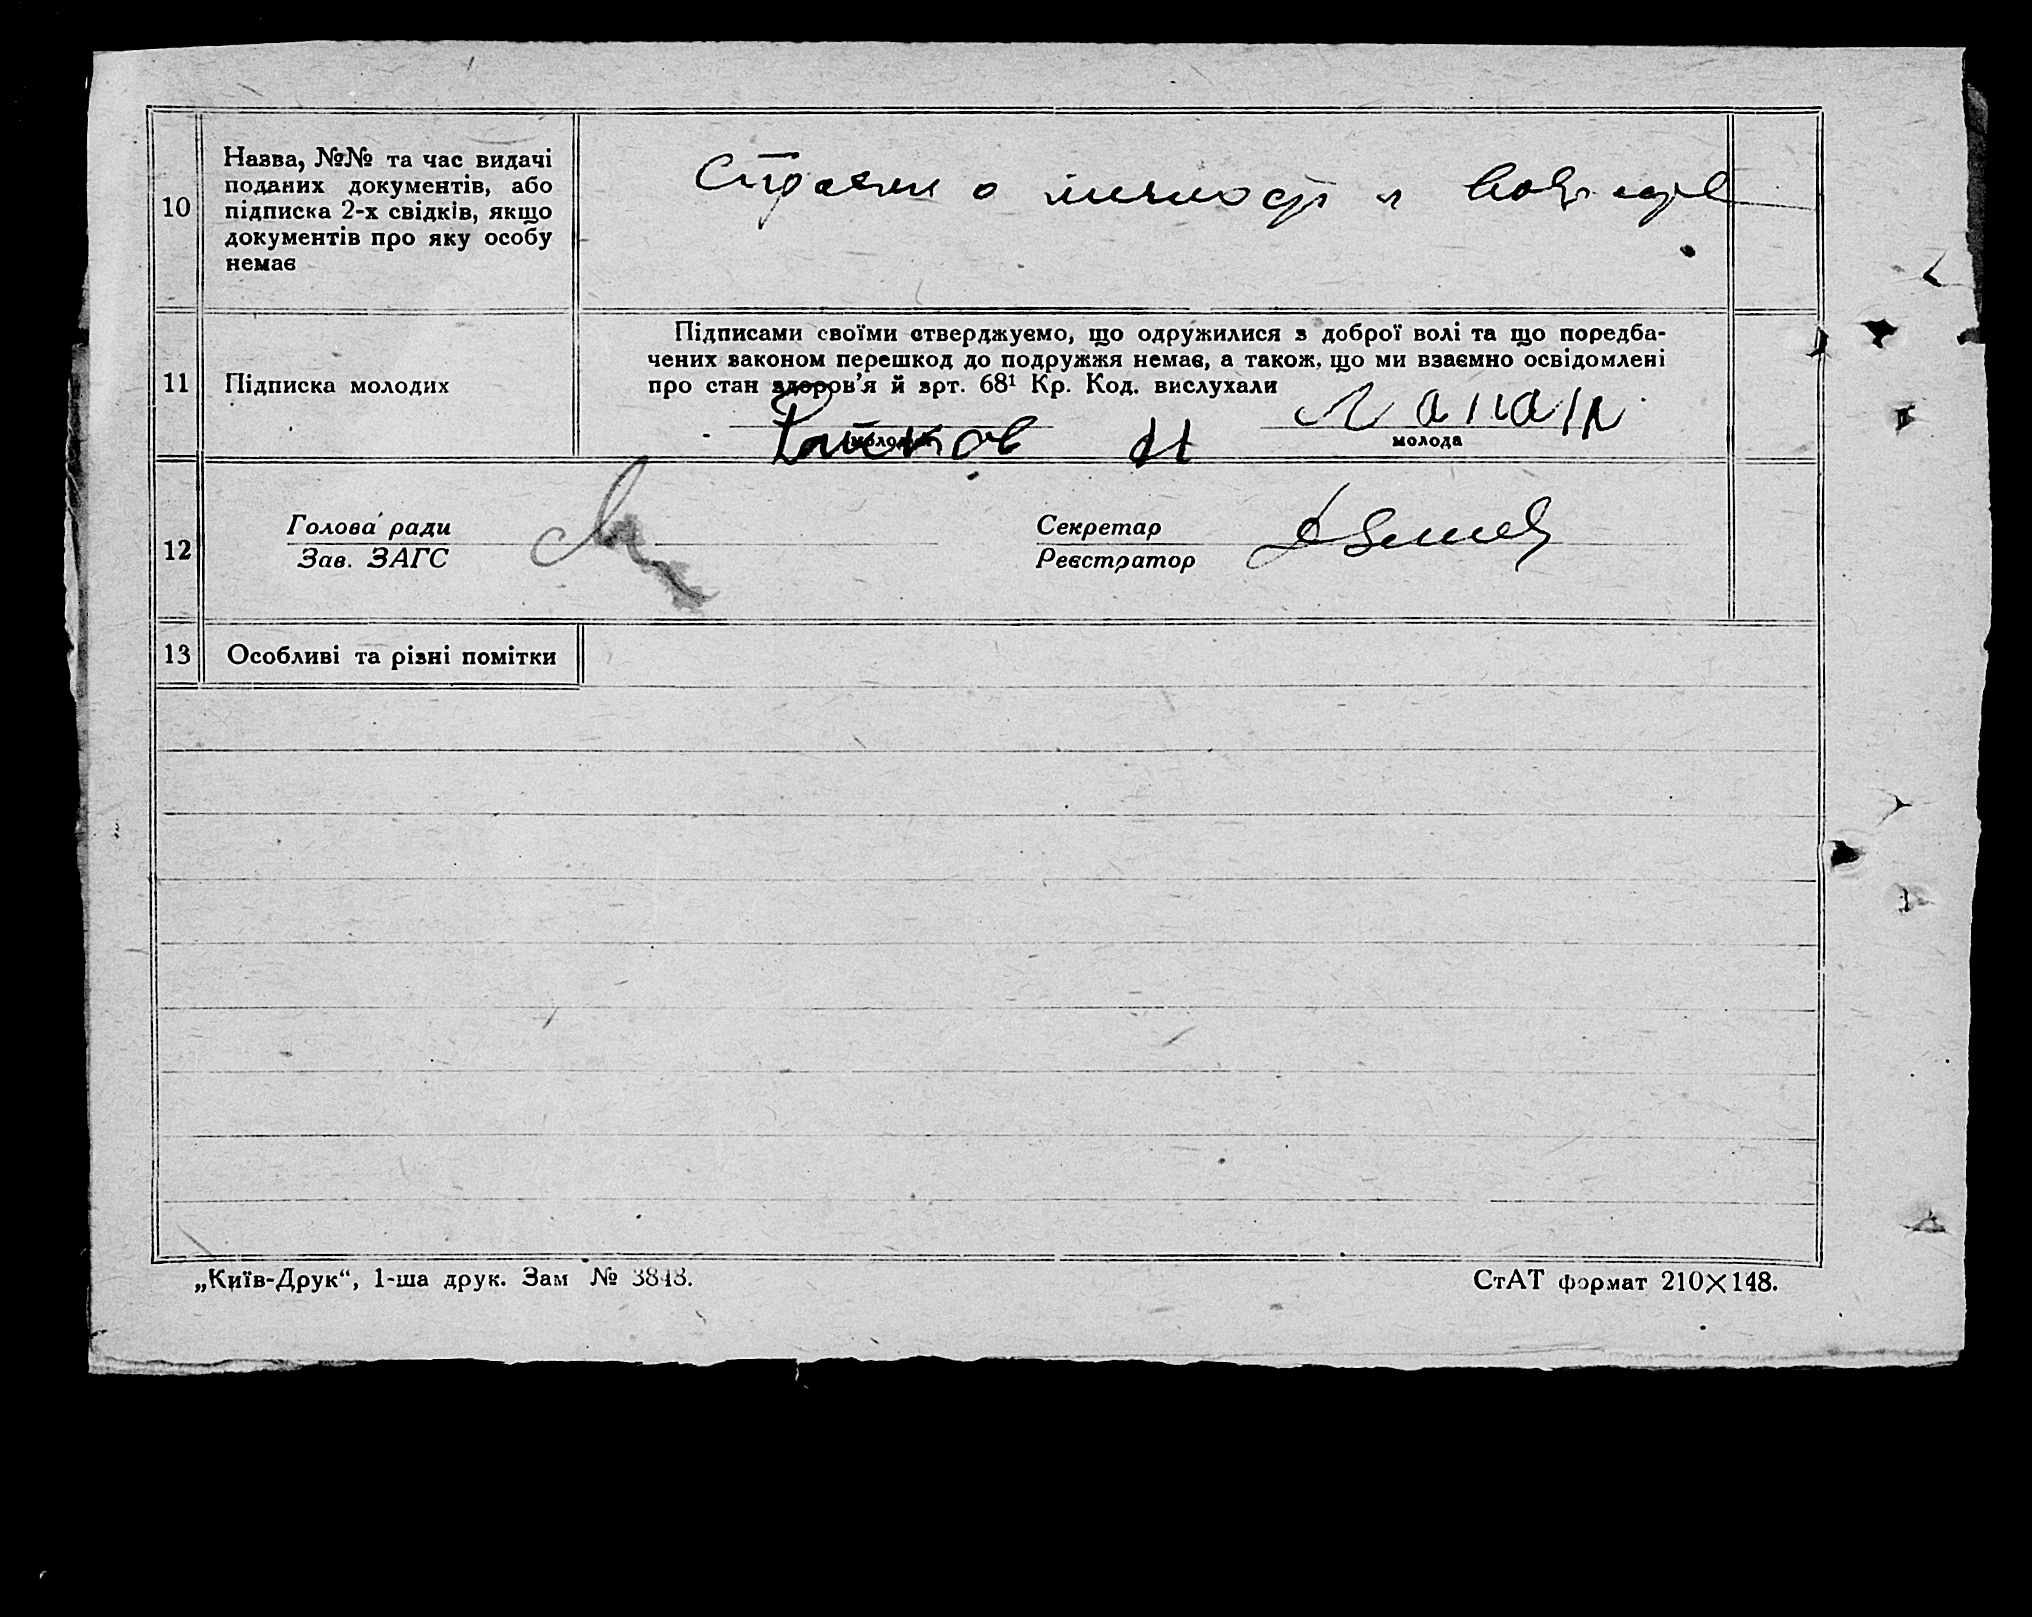 10
Назва, №№ та час видачі
поданих документів, або
підписка 2-х свідків, якщо
документів про яку особу
немає
о личности и
11
Підписка молодих
Підписами своїми стверджуємо, що одружилися з доброї волі та що поредба-
чених законом перешкод до подружжя немає, а також, що ми взаємно освідомлені
про стан здоров’я й арт. 68¹ Кр. Код. вислухали
молодий
молода
12
Голова ради
Зав. ЗАГС
Секретар
Реєстратор
13
Особливі та різні помітки
„Київ-Друк“, 1-ша друк. Зам № 3848.
СтАТ формат 210×148.